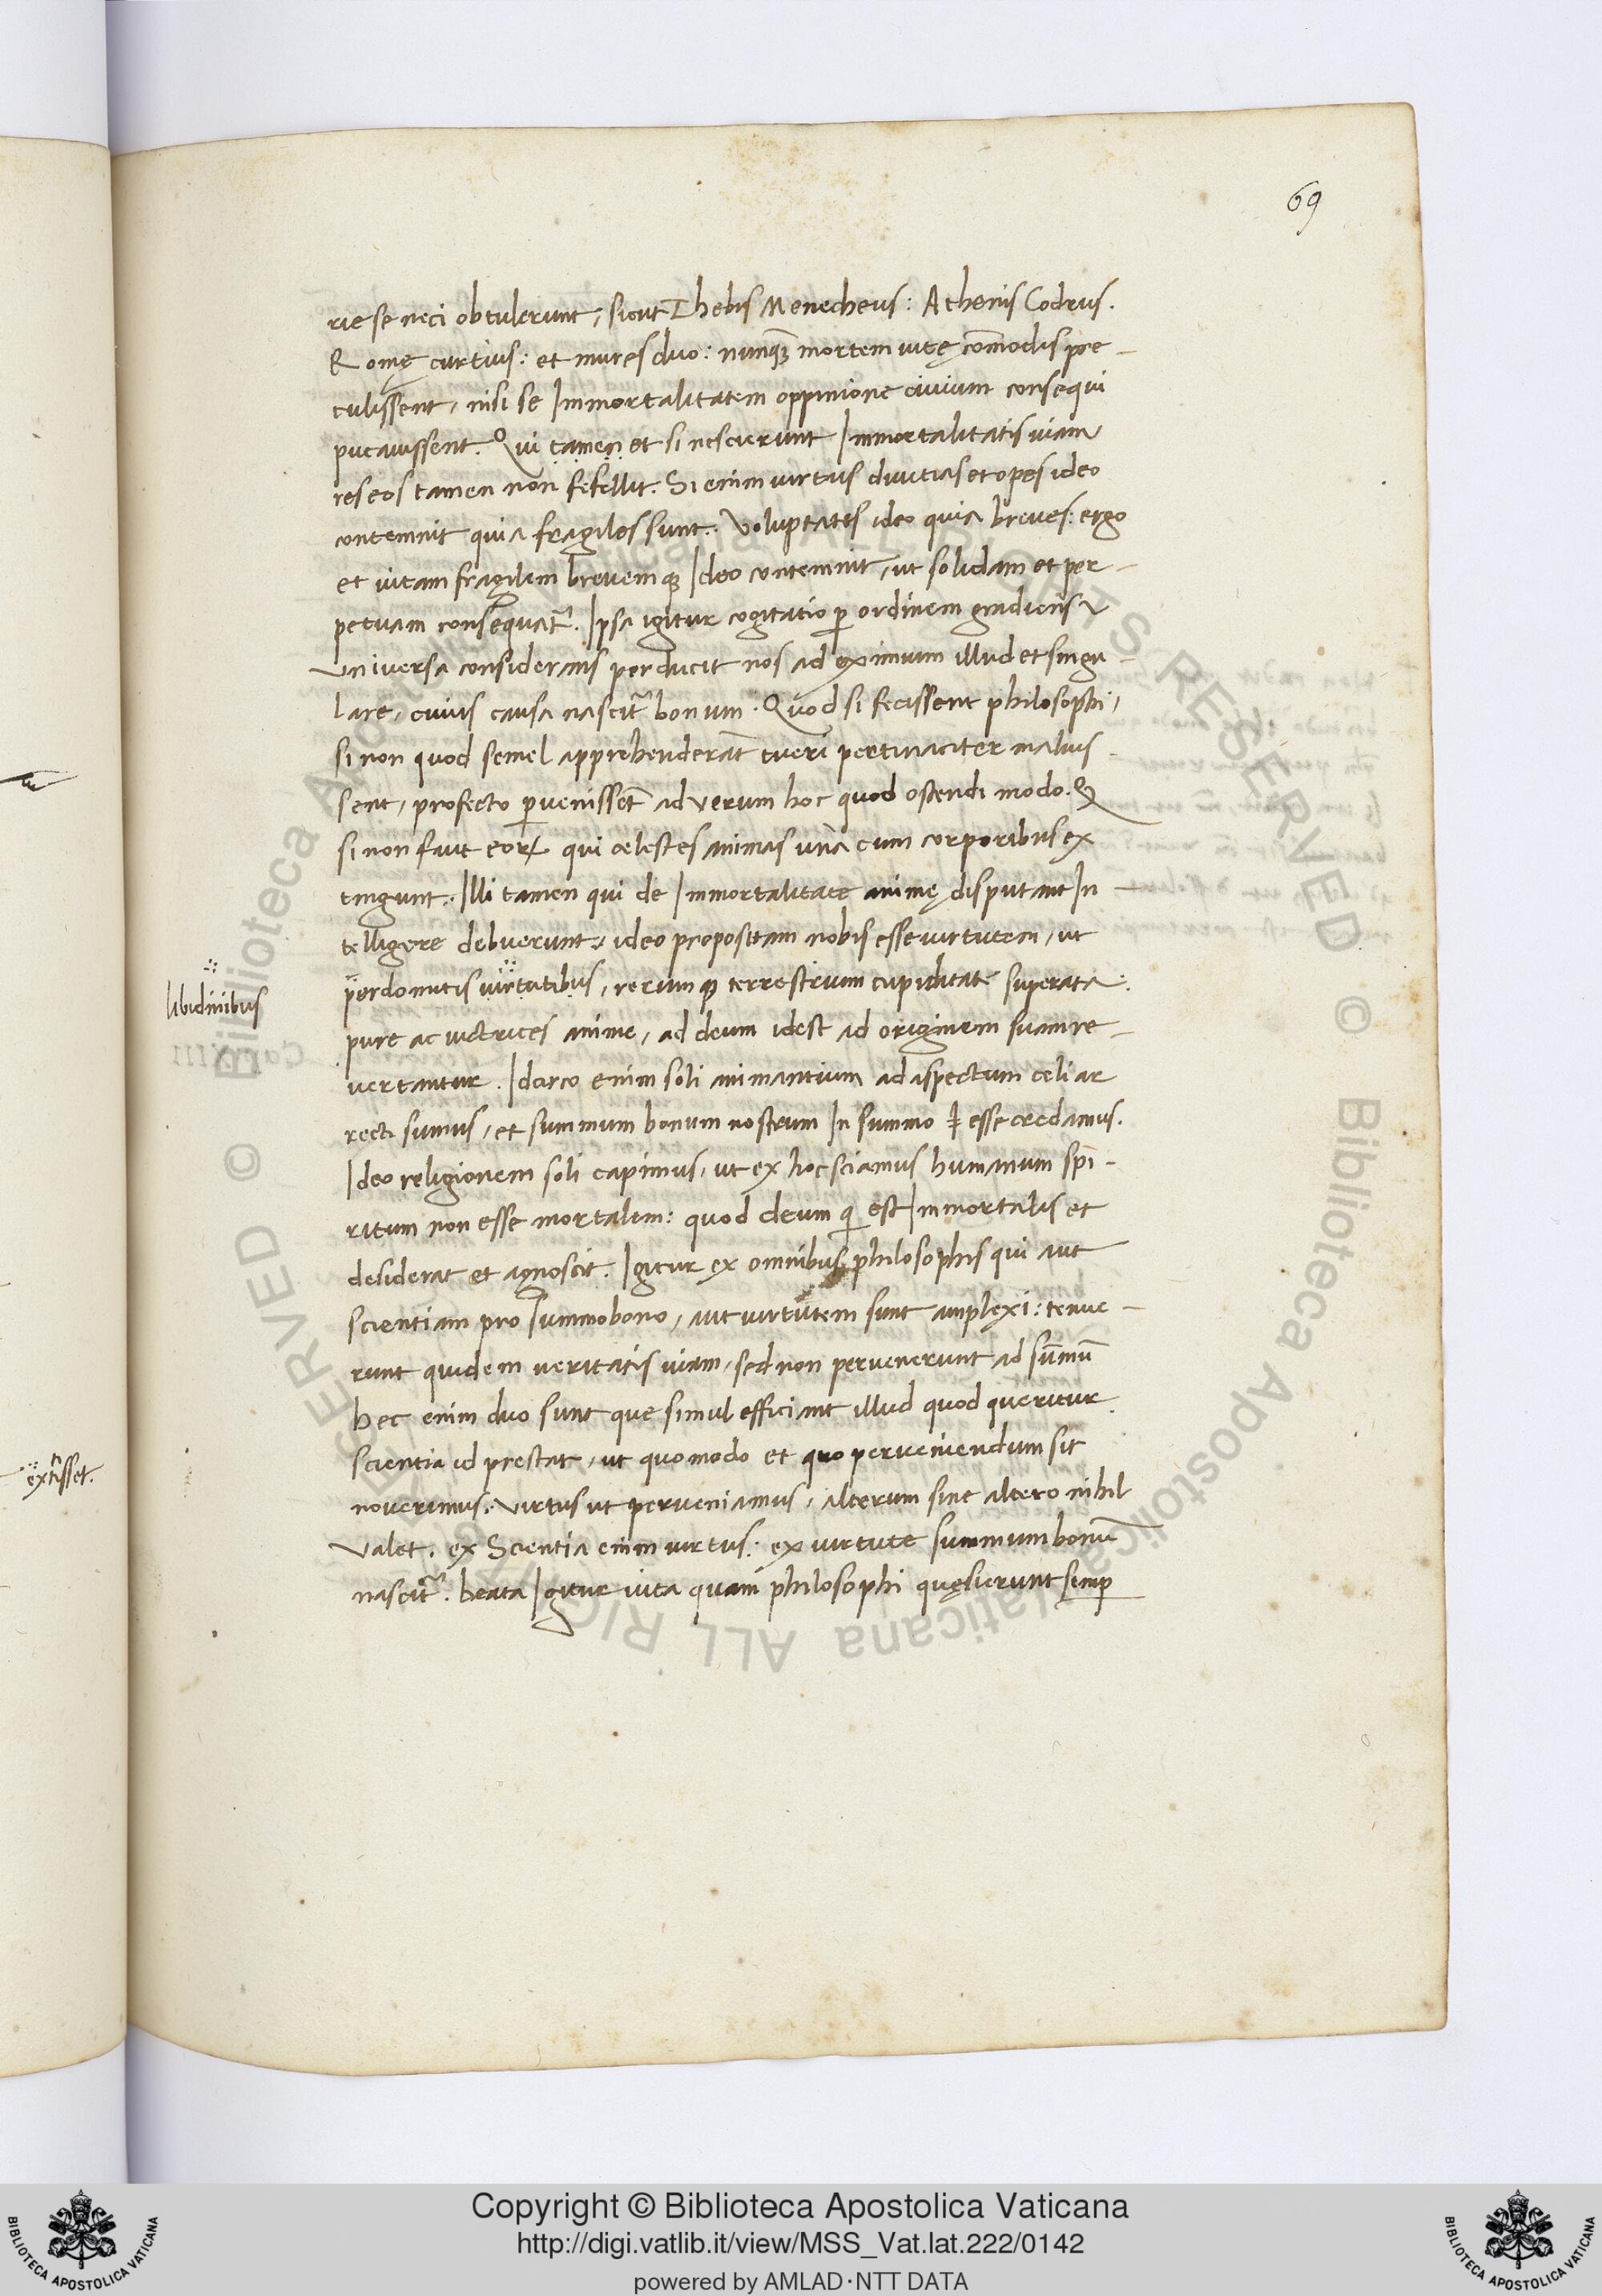 69
rie se neci obtulerunt, sicut Thebis Menecheus: Athenis Codrus.
Romę curtius: et mures duo: nunq̃ mortem uitę com̃odis pre-
tulissent, nisi se Immortalitatem oppinione ciuium consequi
putauissent. Qui tamen et si nescierunt Immortalitatis uiam
res eos tamen non fefellit. Si enim uirtus diuitias et opes ideo
contemnit quia fragiles sunt: Voluptates ideo quia breues: ergo
et uitam fragilem breuemq; Ideo contemnit, ut solidam et per-
petuam consequat̃. Ipsa igitur cogitatio ꝑ ordinem gradiens
Vniuersa considerans perducit nos ad eximium illud et singu-
lare, cuius causa nascit̃ bonum. Quod si fecissent philosophi,
si non quod semel apprehenderãt tueri pertinaciter maluis-
sent, profecto ꝑuenissẽt ad verum hoc quod ostendi modo. Q
si non fuit eoꝝ qui celestes animas una cum corporibus ex
tingunt. Illi tamen qui de Immortalitate animę disputant In-
telligere debuerunt, ideo propositam nobis esse uirtutem, ut
libidinibus
perdomitis uirtutibus, rerumq; terrestrium cupiditate superata:
pure ac uictrices anime, ad deum idest ad originem suam re-
uertantur. Idcirco enim soli animantium ad aspectum celi ar
recti sumus, et summum bonum nostrum In summo ꝉ esse credamus.
Ideo religionem soli capimus, ut ex hoc sciamus humanum spi-
ritum non esse mortalem: quod deum q̇ est Immortalis et
desiderat et agnoscit. Igitur ex omnibus philosophis qui aut
scientiam pro summo bono, aut uirtutem sunt amplexi: tenue-
runt quidem ueritatis uiam, sed non peruenerunt ad sum̃ũ
hec enim duo sunt que simul efficiant illud quod queritur.
extisset.
scientia id prestat, ut quomodo et quo perueniendum sit
nouerimus: Virtus ut perueniamus, alterum sine altero nihil
Valet. ex Scientia enim uirtus: ex uirtute summum bonũ
nascit̃. beata Igitur uita quam philosophi quęsierunt semꝑ
Copyright © Biblioteca Apostolica Vaticana
http://digi.vatlib.it/view/MSS_Vat.lat.222/0142
powered by AMLAD·NTT DATA